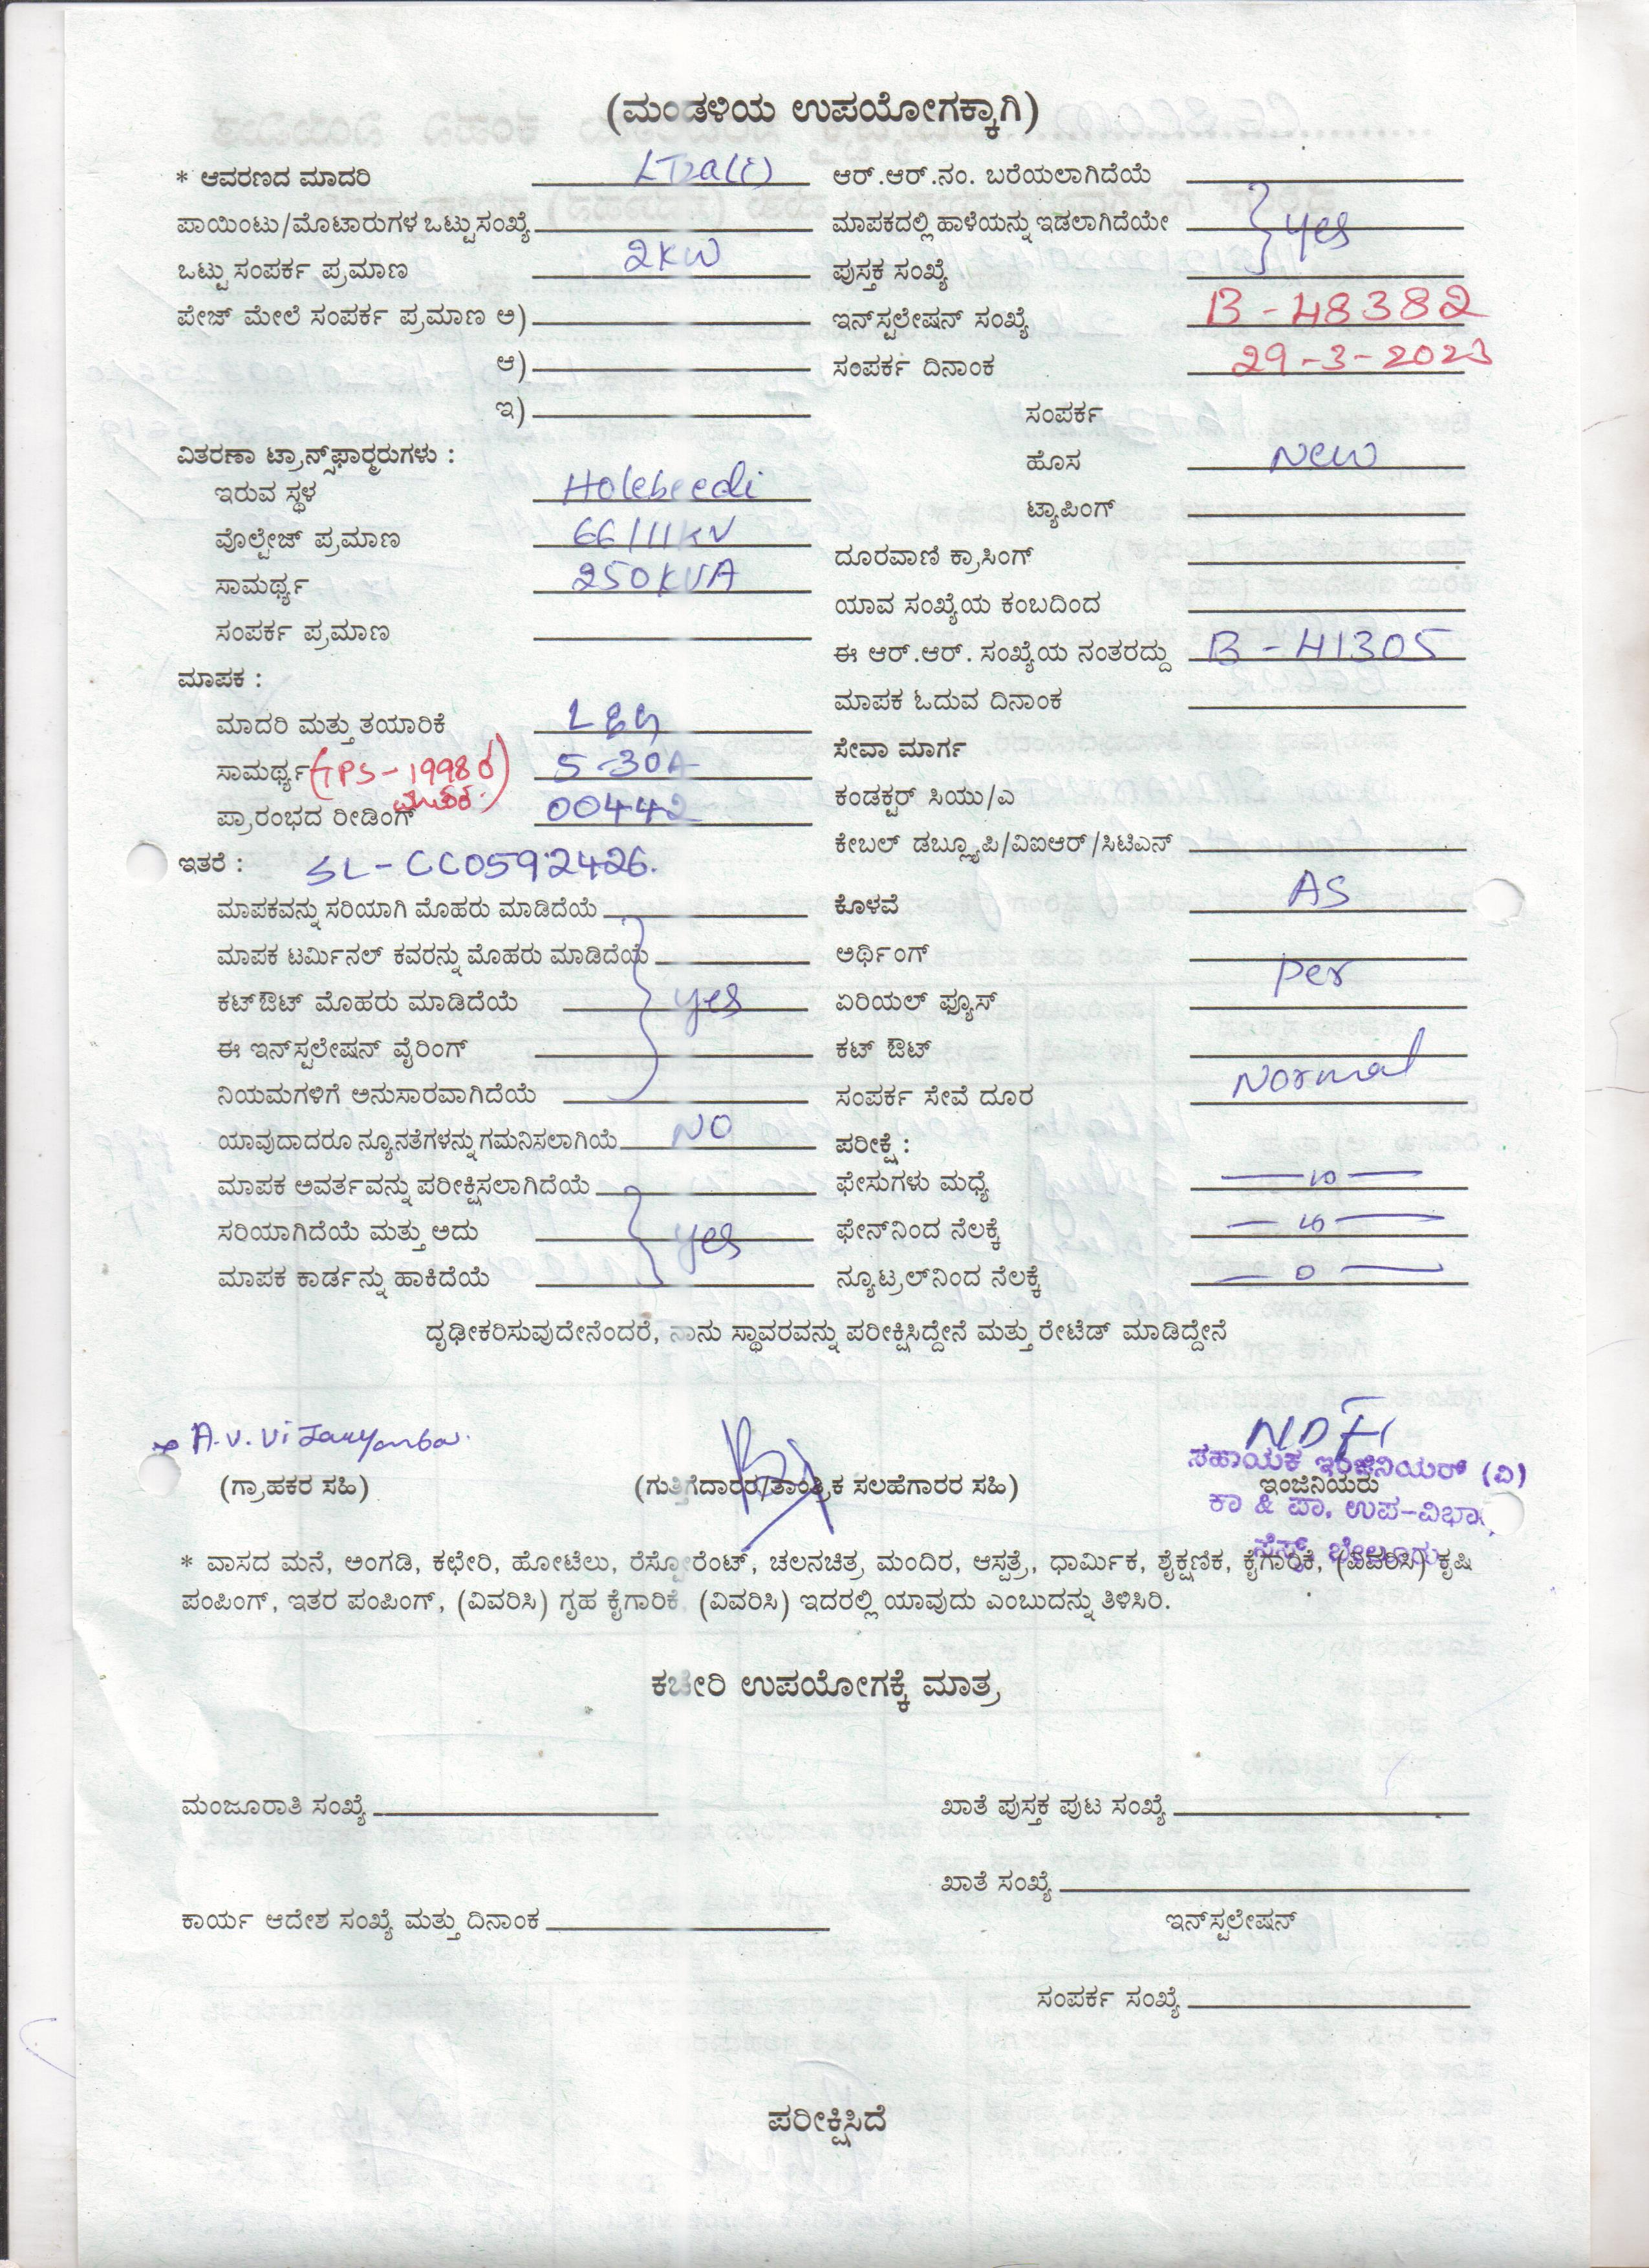 (ಮಂಡಳಿಯ ಉಪಯೋಗಕ್ಕಾಗಿ)
* ಆವರಣದ ಮಾದರಿ LT2a(i)
ಪಾಯಿಂಟು/ಮೊಟಾರುಗಳ ಒಟ್ಟು ಸಂಖ್ಯೆ
ಒಟ್ಟು ಸಂಪರ್ಕ ಪ್ರಮಾಣ 2KW
ಪೇಜ್ ಮೇಲೆ ಸಂಪರ್ಕ ಪ್ರಮಾಣ ಅ)
ಆ)
ಇ)
ವಿತರಣಾ ಟ್ರಾನ್ಸ್‌ಫಾರ್ಮರುಗಳು :
ಇರುವ ಸ್ಥಳ Holebeedi
ವೊಲ್ಟೇಜ್ ಪ್ರಮಾಣ 66/11KV
ಸಾಮರ್ಥ್ಯ 250KVA
ಸಂಪರ್ಕ ಪ್ರಮಾಣ
ಮಾಪಕ :
ಮಾದರಿ ಮತ್ತು ತಯಾರಿಕೆ L&G
ಸಾಮರ್ಥ್ಯ 5-30A
ಪ್ರಾರಂಭದ ರೀಡಿಂಗ್ 00442
ಇತರೆ : SL-CC0592426.
ಮಾಪಕವನ್ನು ಸರಿಯಾಗಿ ಮೊಹರು ಮಾಡಿದೆಯೆ
ಮಾಪಕ ಟರ್ಮಿನಲ್ ಕವರನ್ನು ಮೊಹರು ಮಾಡಿದೆಯೆ
ಕಟ್‌ಔಟ್ ಮೊಹರು ಮಾಡಿದೆಯೆ yes
ಈ ಇನ್‌ಸ್ಟಲೇಷನ್ ವೈರಿಂಗ್
ನಿಯಮಗಳಿಗೆ ಅನುಸಾರವಾಗಿದೆಯೆ
ಯಾವುದಾದರೂ ನ್ಯೂನತೆಗಳನ್ನು ಗಮನಿಸಲಾಗಿಯೆ NO
ಮಾಪಕ ಅವರ್ತವನ್ನು ಪರೀಕ್ಷಿಸಲಾಗಿದೆಯೆ
ಸರಿಯಾಗಿದೆಯೆ ಮತ್ತು ಅದು yes
ಮಾಪಕ ಕಾರ್ಡನ್ನು ಹಾಕಿದೆಯೆ
ಆರ್.ಆರ್.ನಂ. ಬರೆಯಲಾಗಿದೆಯೆ
ಮಾಪಕದಲ್ಲಿ ಹಾಳೆಯನ್ನು ಇಡಲಾಗಿದೆಯೇ yes
ಪುಸ್ತಕ ಸಂಖ್ಯೆ
ಇನ್‌ಸ್ಟಲೇಷನ್ ಸಂಖ್ಯೆ B-48382
ಸಂಪರ್ಕ ದಿನಾಂಕ 29-3-2023
ಸಂಪರ್ಕ
ಹೊಸ New
ಟ್ಯಾಪಿಂಗ್
ದೂರವಾಣಿ ಕ್ರಾಸಿಂಗ್
ಯಾವ ಸಂಖ್ಯೆಯ ಕಂಬದಿಂದ
ಈ ಆರ್.ಆರ್. ಸಂಖ್ಯೆಯ ನಂತರದ್ದು B-41305
ಮಾಪಕ ಓದುವ ದಿನಾಂಕ
ಸೇವಾ ಮಾರ್ಗ
ಕಂಡಕ್ಟರ್ ಸಿಯು/ಎ
ಕೇಬಲ್ ಡಬ್ಲ್ಯೂಪಿ/ವಿಐಆರ್/ಸಿಟಿಎನ್
ಕೊಳವೆ AS
ಅರ್ಥಿಂಗ್
ಏರಿಯಲ್ ಫ್ಯೂಸ್ per
ಕಟ್ ಔಟ್
ಸಂಪರ್ಕ ಸೇವೆ ದೂರ Normal
ಪರೀಕ್ಷೆ :
ಫೇಸುಗಳು ಮಧ್ಯೆ
ಫೇನ್‌ನಿಂದ ನೆಲಕ್ಕೆ
ನ್ಯೂಟ್ರಲ್‌ನಿಂದ ನೆಲಕ್ಕೆ 0
ದೃಢೀಕರಿಸುವುದೇನೆಂದರೆ, ನಾನು ಸ್ಥಾವರವನ್ನು ಪರೀಕ್ಷಿಸಿದ್ದೇನೆ ಮತ್ತು ರೇಟೆಡ್ ಮಾಡಿದ್ದೇನೆ
(ಗ್ರಾಹಕರ ಸಹಿ)
(ಗುತ್ತಿಗೆದಾರರ/ತಾಂತ್ರಿಕ ಸಲಹೆಗಾರರ ಸಹಿ)
ಸಹಾಯಕ ಇಂಜಿನಿಯರ್ (ವಿ)
ಇಂಜಿನಿಯರು
ಕಾ & ಪಾ. ಉಪ-ವಿಭಾಗ
ಸೆಸ್ಕ್, ಬೇಲೂರು
* ವಾಸದ ಮನೆ, ಅಂಗಡಿ, ಕಛೇರಿ, ಹೋಟೆಲು, ರೆಸ್ಟೋರೆಂಟ್, ಚಲನಚಿತ್ರ ಮಂದಿರ, ಆಸ್ಪತ್ರೆ, ಧಾರ್ಮಿಕ, ಶೈಕ್ಷಣಿಕ, ಕೈಗಾರಿಕೆ, (ವಿವರಿಸಿ) ಕೃಷಿ
ಪಂಪಿಂಗ್, ಇತರ ಪಂಪಿಂಗ್, (ವಿವರಿಸಿ) ಗೃಹ ಕೈಗಾರಿಕೆ, (ವಿವರಿಸಿ) ಇದರಲ್ಲಿ ಯಾವುದು ಎಂಬುದನ್ನು ತಿಳಿಸಿರಿ.
ಕಚೇರಿ ಉಪಯೋಗಕ್ಕೆ ಮಾತ್ರ
ಮಂಜೂರಾತಿ ಸಂಖ್ಯೆ
ಖಾತೆ ಪುಸ್ತಕ ಪುಟ ಸಂಖ್ಯೆ
ಖಾತೆ ಸಂಖ್ಯೆ
ಕಾರ್ಯ ಆದೇಶ ಸಂಖ್ಯೆ ಮತ್ತು ದಿನಾಂಕ
ಇನ್‌ಸ್ಟಲೇಷನ್
ಸಂಪರ್ಕ ಸಂಖ್ಯೆ
ಪರೀಕ್ಷಿಸಿದೆ